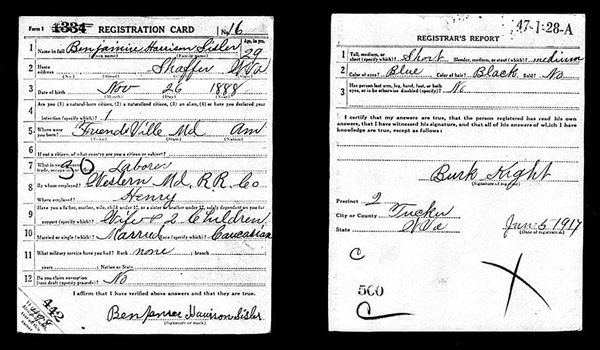 Form 1 1334 REGISTRATION CARD No. 16
1 Name in full Benjamine Harrison Sisler Age, in yrs. 29
(Given name) (Family name)
2 Home address Shaffer W Va
(No.) (Street) (City) (State)
3 Date of birth Nov 26 1888
(Month) (Day) (Year)
4 Are you (1) a natural-born citizen, (2) a naturalized citizen, (3) an alien, (4) or have you declared your
intention (specify which)? 1
5 Where were you born? Friendsville Md Am
(Town) (State) (Nation)
6 If not a citizen, of what country are you a citizen or subject?
7 What is your present trade, occupation, or office? Laborer
8 By whom employed? Western Md. R.R. Co
Where employed? Henry
9 Have you a father, mother, wife, child under 12, or a sister or brother under 12, solely dependent on you for
support (specify which)? Wife & 2 Children
10 Married or single (which)? Married Race (specify which)? Caucasian
11 What military service have you had? Rank none ; branch
years ; Nation or State
12 Do you claim exemption from draft (specify grounds)? No
I affirm that I have verified above answers and that they are true.
442
Benjamine Harrison Sisler
(Signature or mark)
47-1-28-A
REGISTRAR'S REPORT
1 Tall, medium, or short (specify which)? Short Slender, medium, or stout (which)? medium
2 Color of eyes? Blue Color of hair? Black Bald? No
3 Has person lost arm, leg, hand, foot, or both eyes, or is he otherwise disabled (specify)? No
I certify that my answers are true, that the person registered has read his own answers, that I have witnessed his signature, and that all of his answers of which I have knowledge are true, except as follows:
Burk Kight
(Signature of registrar)
Precinct 2
City or County Tucker
State W Va Jun 5 1917
(Date of registration)
C
500
C
X